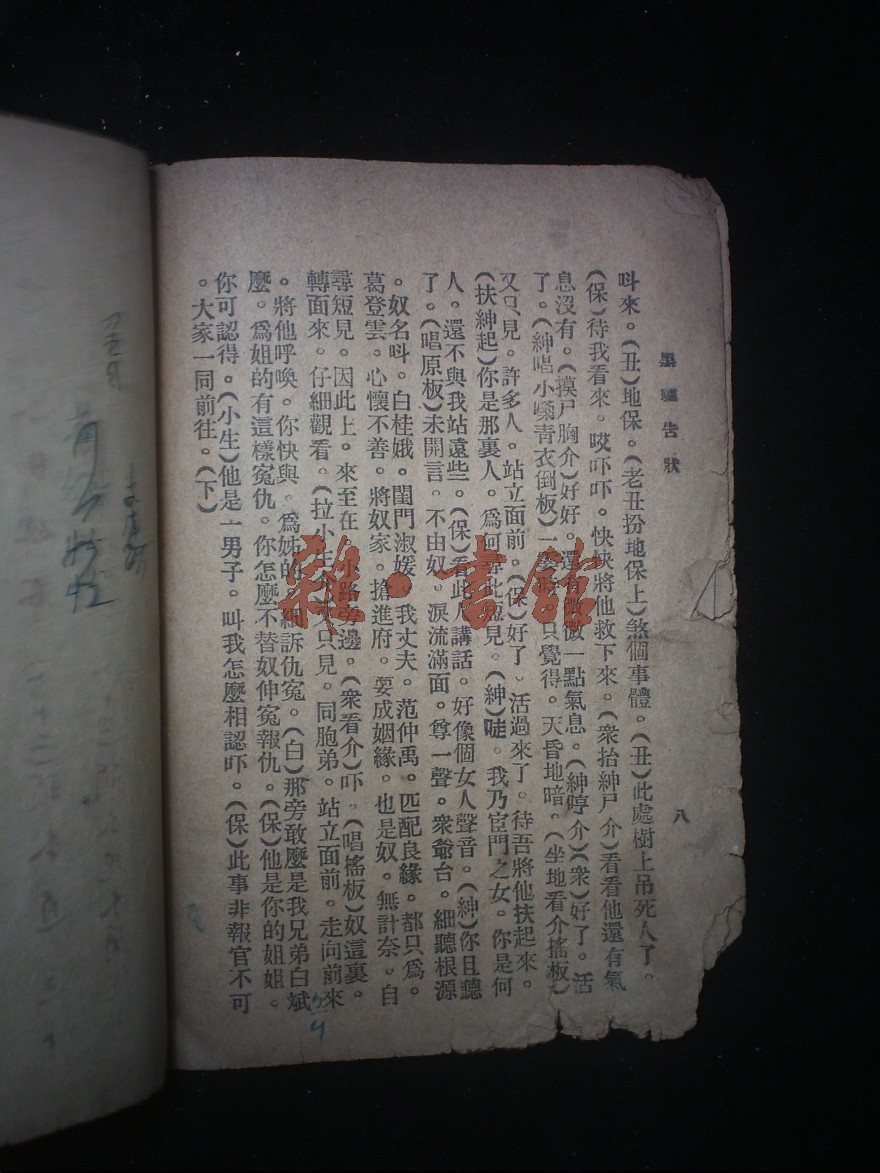 黑驢告狀
八
呌來。(丑)地保。(老丑扮地保上)煞個事體。(丑)此處樹上吊死人了。
(保)待我看來。哎吓吓。快快將他救下來。(衆抬紳尸介)看看他還有氣
息沒有。(摸尸胸介)好好。還有微微一點氣息。(紳哼介)(衆)好了。活
了。(紳唱小嗓青衣倒板)一霎時。只覺得。天昏地暗。(坐地看介搖板)
又只見。許多人。站立面前。(保)好了。活過來了。待吾將他扶起來。
(扶紳起)你是那裏人。爲何尋此短見。(紳)唗。我乃宦門之女。你是何
人。還不與我站遠些。(保)看此人講話。好像個女人聲音。(紳)你且聽
了。(唱原板)未開言。不由奴。淚流滿面。尊一聲。衆爺台。細聽根源
。奴名呌。白桂娥。閨門淑媛。我丈夫。范仲禹。匹配良緣。都只爲。
葛登雲。心懷不善。將奴家。搶進府。要成姻緣。也是奴。無計奈。自
尋短見。因此上。來至在。小路旁邊。(衆看介)吓。(唱搖板)奴這裏。
轉面來。仔細觀看。(拉小生介)又只見。同胞弟。站立面前。走向前來
。將他呼喚。你快與。爲姊的。細訴仇冤。(白)那旁敢麼是我兄弟白斌
麼。爲姐的有這樣冤仇。你怎麼不替奴伸冤報仇。(保)他是你的姐姐。
你可認得。(小生)他是一男子。叫我怎麼相認吓。(保)此事非報官不可
。大家一同前往。(下)
雜·書館